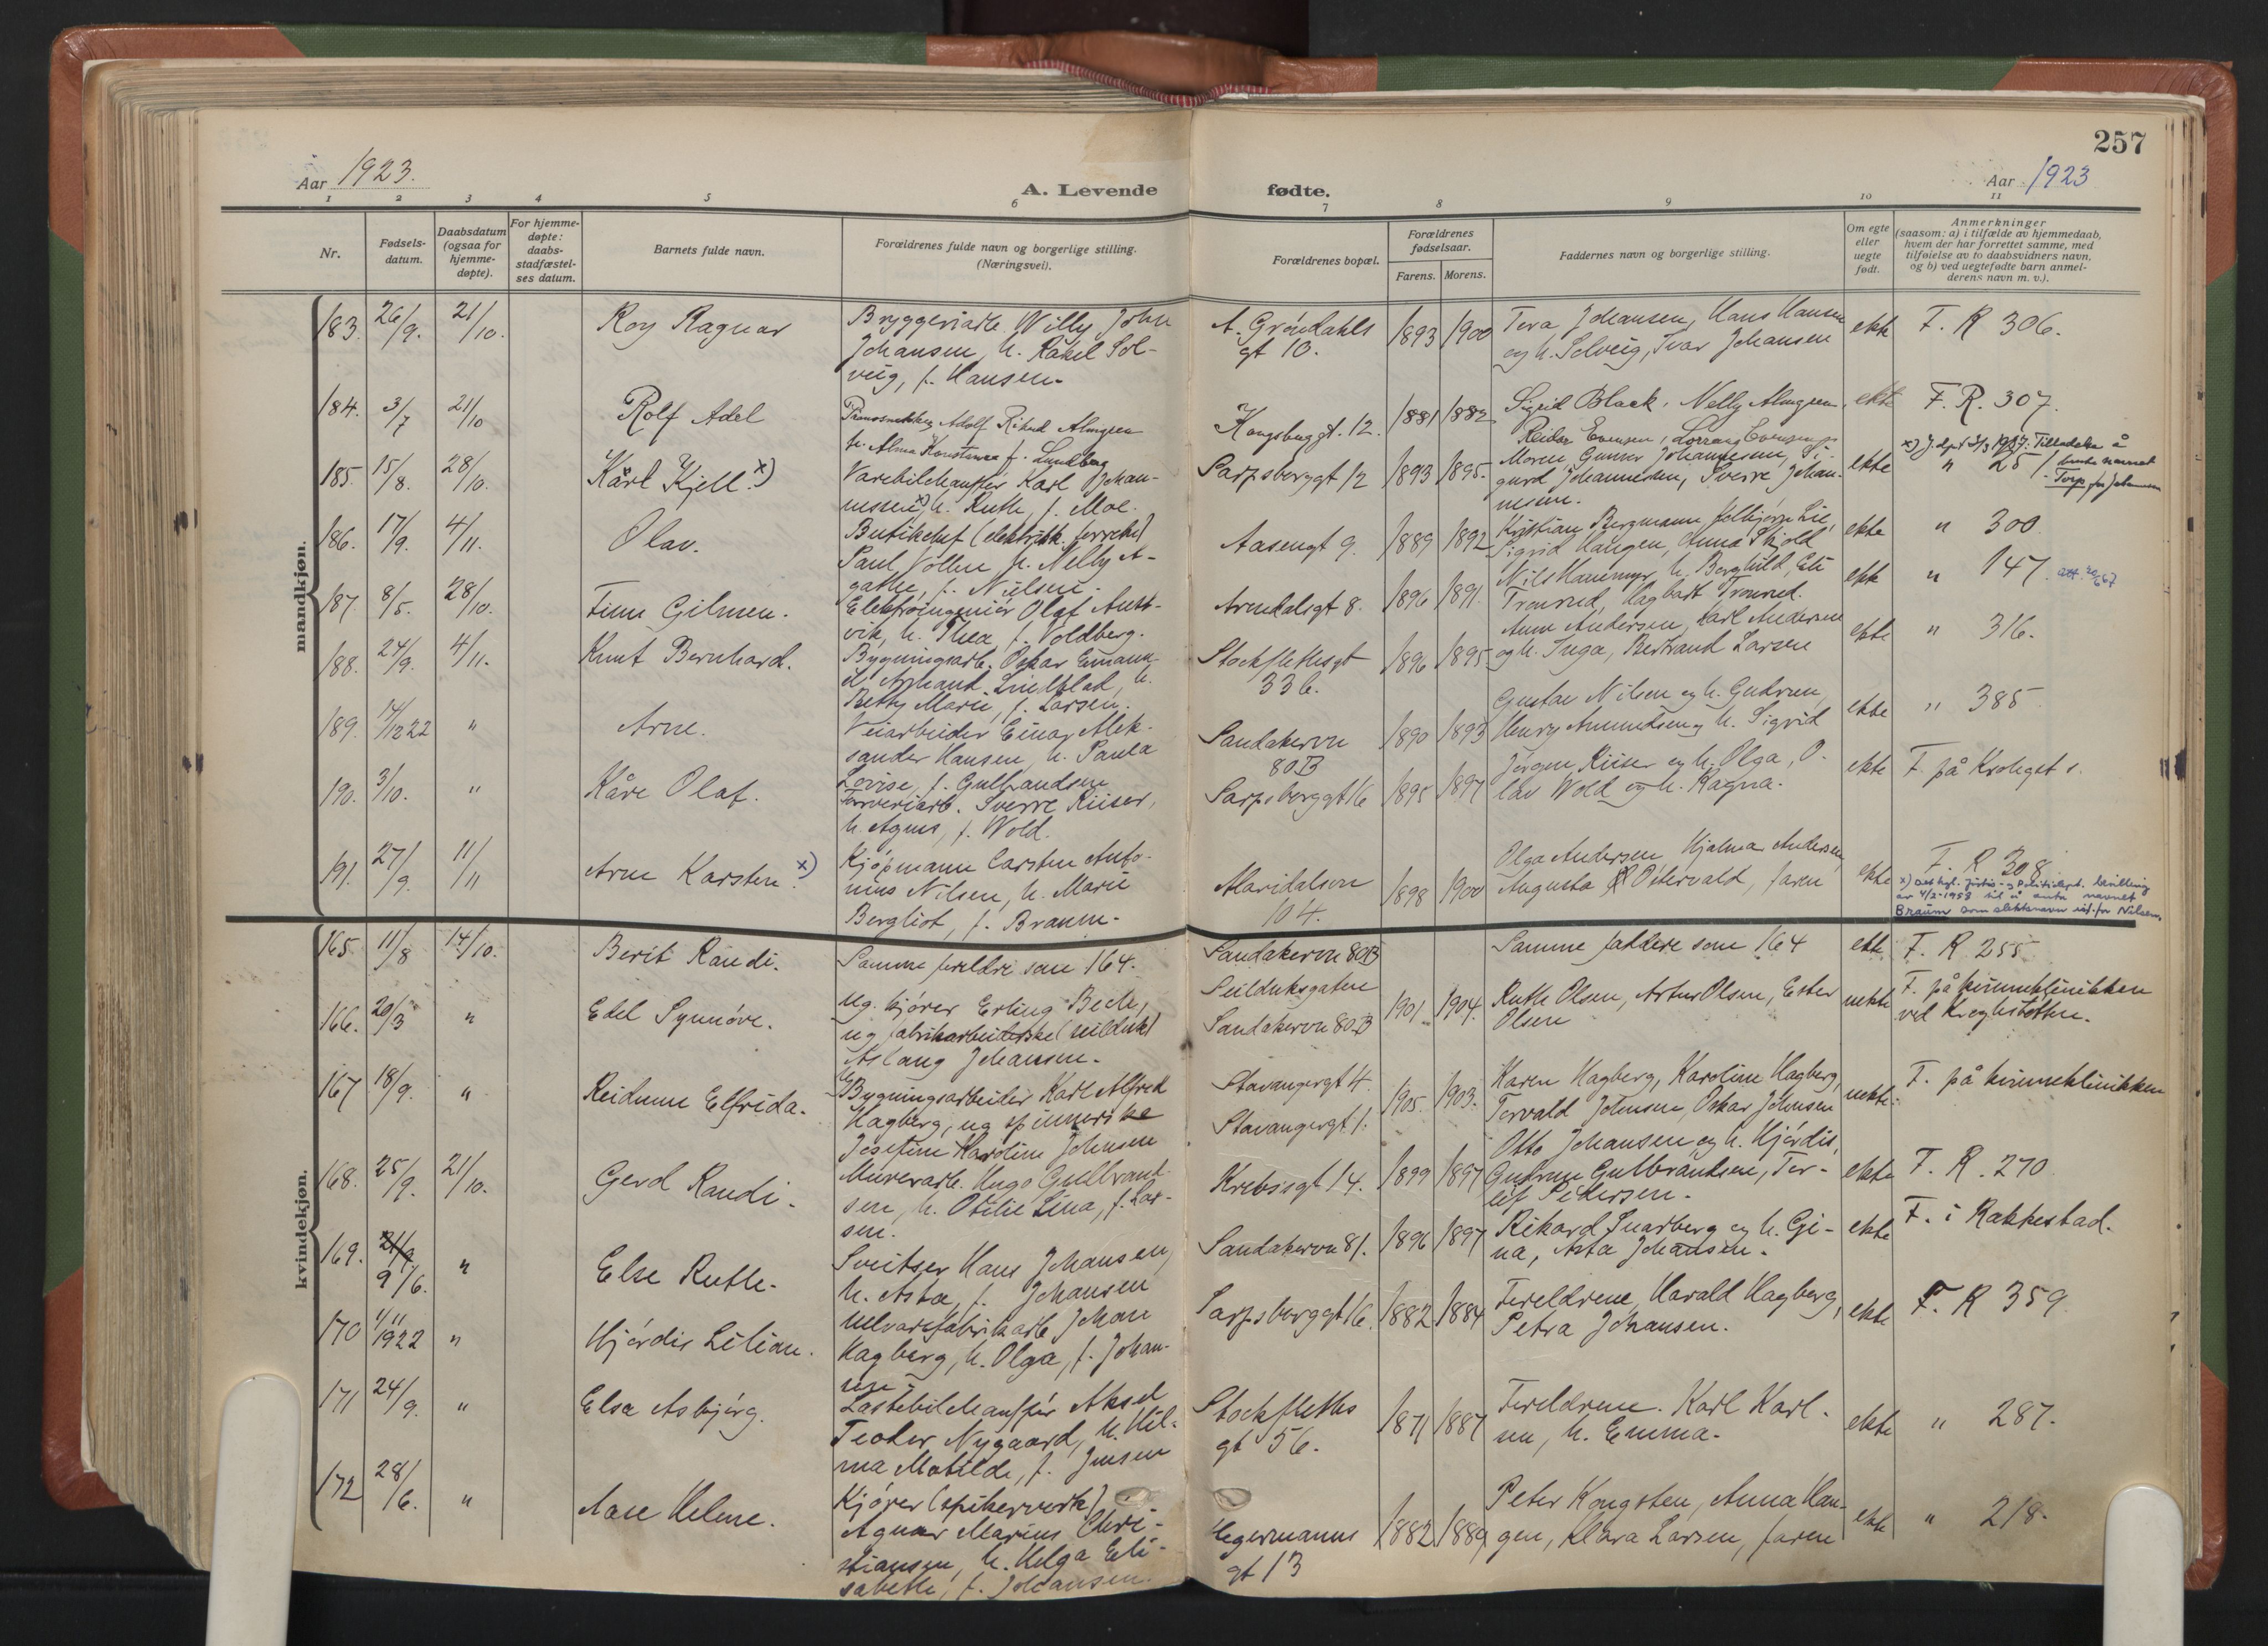 257
Aar 1923.
A. Levende fødte.
Aar 1923
1 2 3 4 5 6 7 8 9 10 11
Nr.
Fødsels-
datum.
Daabsdatum
(ogsaa for
hjemme-
døpte).
For hjemme-
døpte:
daabs-
stadfæstel-
ses datum.
Barnets fulde navn.
Forældrenes fulde navn og borgerlige stilling.
(Næringsvei).
Forældrenes bopæl.
Forældrenes
fødselsaar.
Farens. Morens.
Faddernes navn og borgerlige stilling.
Om egte
eller
uegte
født.
Anmerkninger
(saasom: a) i tilfælde av hjemmedaab,
hvem der har forrettet samme, med
tilføielse av to daabsvidners navn,
og b) ved uegtefødte barn anmel-
derens navn m. v.).
mandkjøn.
183. 26/9. 21/10. Roy Ragnar
Bryggeriarb. Willy John
Johansen, h. Rakel Sol-
veig, f. Hansen.
A. Grøndahls
gt 10.
1893 1900
Tora Johansen, Hans Hansen
og h. Solveig, Ivar Johansen
ekte F. R 306.
184. 3/7 21/10 Rolf Adel
Adolf Rikard Almgren
h. Alma Konstanse f. Lundberg
Kongsbuggt. 12. 1881 1882
Sigrid Black, Nelly Almgren,
Reidar Evensen,
ekte F. R. 307.
185. 15/8. 28/10. Kårl Kjell x)
Varebilchauffør Karl Johan-
nessen x), h. Ruth, f. Moe.
Sarpsborggt 12 1893 1895.
Moren, Gunnar Johannesen, Si-
gurd Johannesen, Sverre Johan-
nesen.
ekte " 251
x) Tilladelse å
bruke navnet
Torp for Johannesen
186. 17/9. 4/11. Olav.
Butikchef (elektrisk forretn.)
Paul Vollen h. Nelly A-
gathe, f. Nielsen.
Aasengt 9. 1889 1892
Kristian Bergmann,
Sigrid Haugen, Anna Skjold
ekte " 300
187. 8/5. 28/10. Finn Gilmen.
Elektroingeniør Olaf
vik, h. Thea, f. Voldberg.
Arendalsgt 8. 1896 1891.
Nils Hammyr, h. Borghild,
Tronrud, Dagbart Tronrud.
ekte " 147.
188. 24/9. 4/11. Knut Bernhard.
Bygningsarb. Oskar Emanu-
el Lindblad, h.
Betty Marie, f. Larsen.
Stockflethsgt
33b.
1896 1895
Anne Andersen, Karl Andersen
og h. Inga, Bertrand Larsen
ekte " 316.
189. 14/12 22 " Arne.
Veiarbeider Einar Alek-
sander Hansen, h. Paula
Lovise, f. Gulbrandsen
Sandakervn
80B
1890 1893
Gustav Nilsen og h. Gudrun,
Henry Amundsen og h. Sigrid
ekte " 385
190. 3/10. " Kåre Olaf.
Farveriarb. Sverre Kiiser,
h. Agnes, f. Wold.
Sarpsborggt 16 1895 1897
Jørgen Kiiser og h. Olga, O-
lav Wold og h. Ragna.
ekte
191. 27/9. 11/11 Arne Karsten. x)
Kjøpmann Carsten Anto-
nius Nilsen, h. Marie
Bergliot, f. Braum.
Maridalsvn
104.
1898 1900
Olga Andersen, Hjalmar Andersen,
Augusta Østervald, faren
ekte F. R 308
x) Justis- og Politidept. bevilling
av 4/2-1958 til å anta navnet
Braum som slektsnavn ist. for Nilsen.
kvindekjøn.
165. 11/8 14/10. Berit Randi.
Samme foreldre som 164.
Sandakervn 80B
Samme faddere som 164
ekte F. R 255
166. 20/3 " Edel Synnøve.
ug. kjører Erling Bech,
ug fabrikarbeiderske (seilduk)
Aslaug Johansen.
Seilduksgaten
Sandakervn 80B
1901 1904.
Ruth Olsen, Artur Olsen, Ester
Olsen
uekte F. på kvinneklinikken
167 18/9. " Reidunn Elfrida.
Bygningsarbeider Karl Alfred
Hagberg, ug spinnerske
Josefine Karoline Johnsen
Stavangergt 4.
Stavangergt 1.
1905. 1903.
Karen Hagberg, Karoline Hagberg,
Torvald Johnsen, Oskar Johnsen
uekte. F. på kvinneklinikken
168. 25/9. 21/10. Gerd Randi.
Murerarb. Hugo Gulbrand-
sen, h. Otilie Lina, f. Lar-
sen.
Krebsgt 14. 1899 1897
Otto Johansen og h. Hjørdis,
Gudrun Gulbrandsen, Tor-
leif Pedersen.
ekte F. R. 270
169. 21/9 9/6. " Else Ruth.
Sveitser Hans Johansen,
h. Asta, f. Johansen
Sandakervn 81. 1896 1897
Rikard Snarberg og h. Gi-
na, Asta Johansen.
ekte F. i Rakkestad.
170 1/11 1922 " Hjørdis Lilian.
Ulvarefabrikarb. Johan
Hagberg, h. Olga, f. Johan-
sen.
Sarpsborggt 16. 1882 1884
Foreldrene, Harald Hagberg,
Petra Johansen.
ekte F. R 359
171 24/9. " Elsa Asbjørg.
Lastebilchauffør Aksel
Teodor Nygaard, h. Hil-
ma Matilde, f. Jensen
Stockfleths
gt 56.
1871 1887
Foreldrene. Karl Karl-
sen, h. Emma.
ekte " 287.
172 28/6. " Aase Helene.
Kjører (spikerverk)
Agnar Marius Chri-
stiansen, h. Helga Eli-
sabeth, f. Johansen.
Hegermanns
gt 13
1882 1889
Peter Kongsten, Anna Hau-
gen, Klara Larsen, faren
ekte " 218.